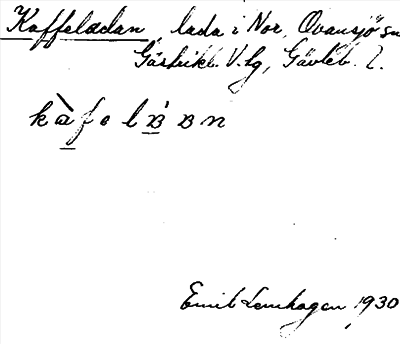 Kaffeladan, lada i Nor, Ovansjö sn
Gästrikl. V. lg, Gävleb. l.
Emil Lenhagen 1930